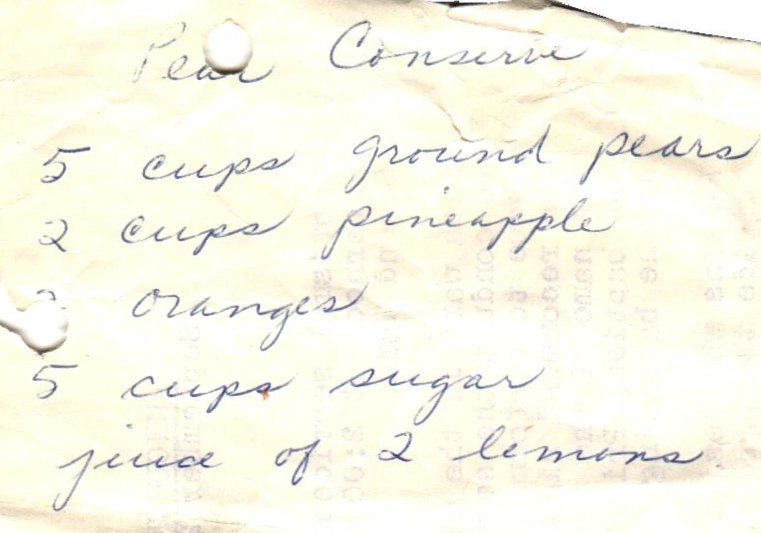 Pear Conserve
5 cups ground pears
2 cups pineapple
oranges
5 cups sugar
juice of 2 lemons